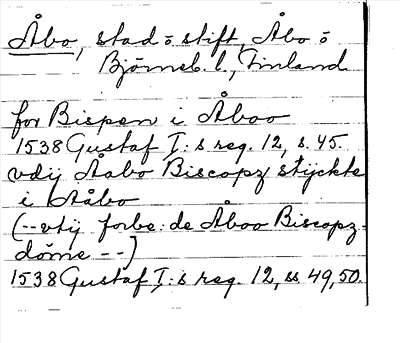 Åbo, stad o stift, Åbo o
Björneb. l., Finland
for Bispen i Åboo
1538 Gustaf I:s reg. 12, s. 45.
vdij Åabo Biscopz stÿckte
i Aåbo
(--vtij forbe:de Åboo Biscopz-
döme --)
1538 Gustaf I:s reg. 12, ss 49, 50.